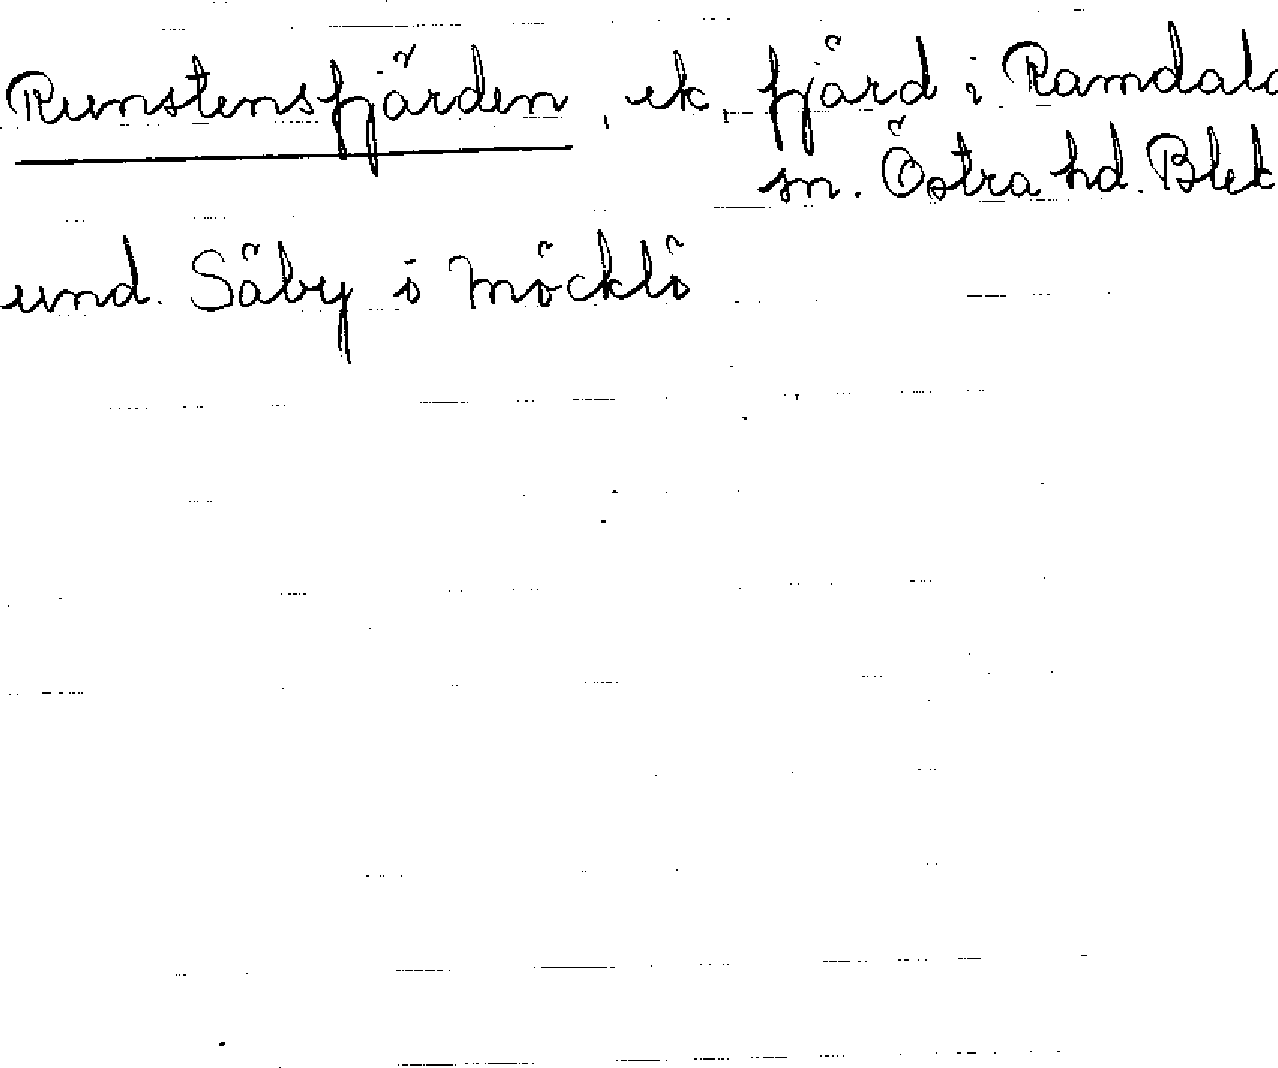 Runstensfjärden, ek, fjärd i Ramdala
sn. Östra hd. Blek
und. Säby i Möcklö